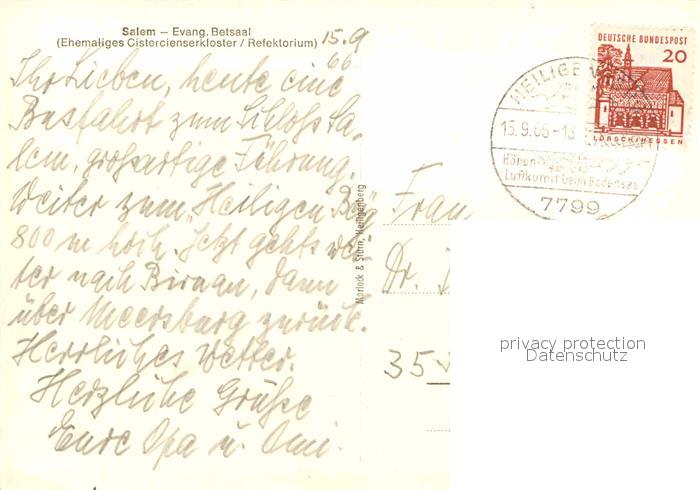 Salem — Evang. Betsaal
(Ehemaliges Cistercienserkloster / Refektorium)
15.9
66.
Ihr Lieben, heute eine
Busfahrt zum Schloß Sa-
lem, großartige Führung.
Weiter zum "Heiligen Bg"
800 m hoch. Jetzt gehts wei-
ter nach Birnau, dann
über Meersburg zurück.
Herrliches Wetter.
Herzliche Grüße
Eure Opa u. Omi.
Morlock & Sturn, Heiligenberg
DEUTSCHE BUNDESPOST
20
LORSCH/HESSEN
HEILIGE
15.9.66-18
Höhen
Luftkurort beim Bodensee
7799
Frau
Dr.
35
privacy protection
Datenschutz